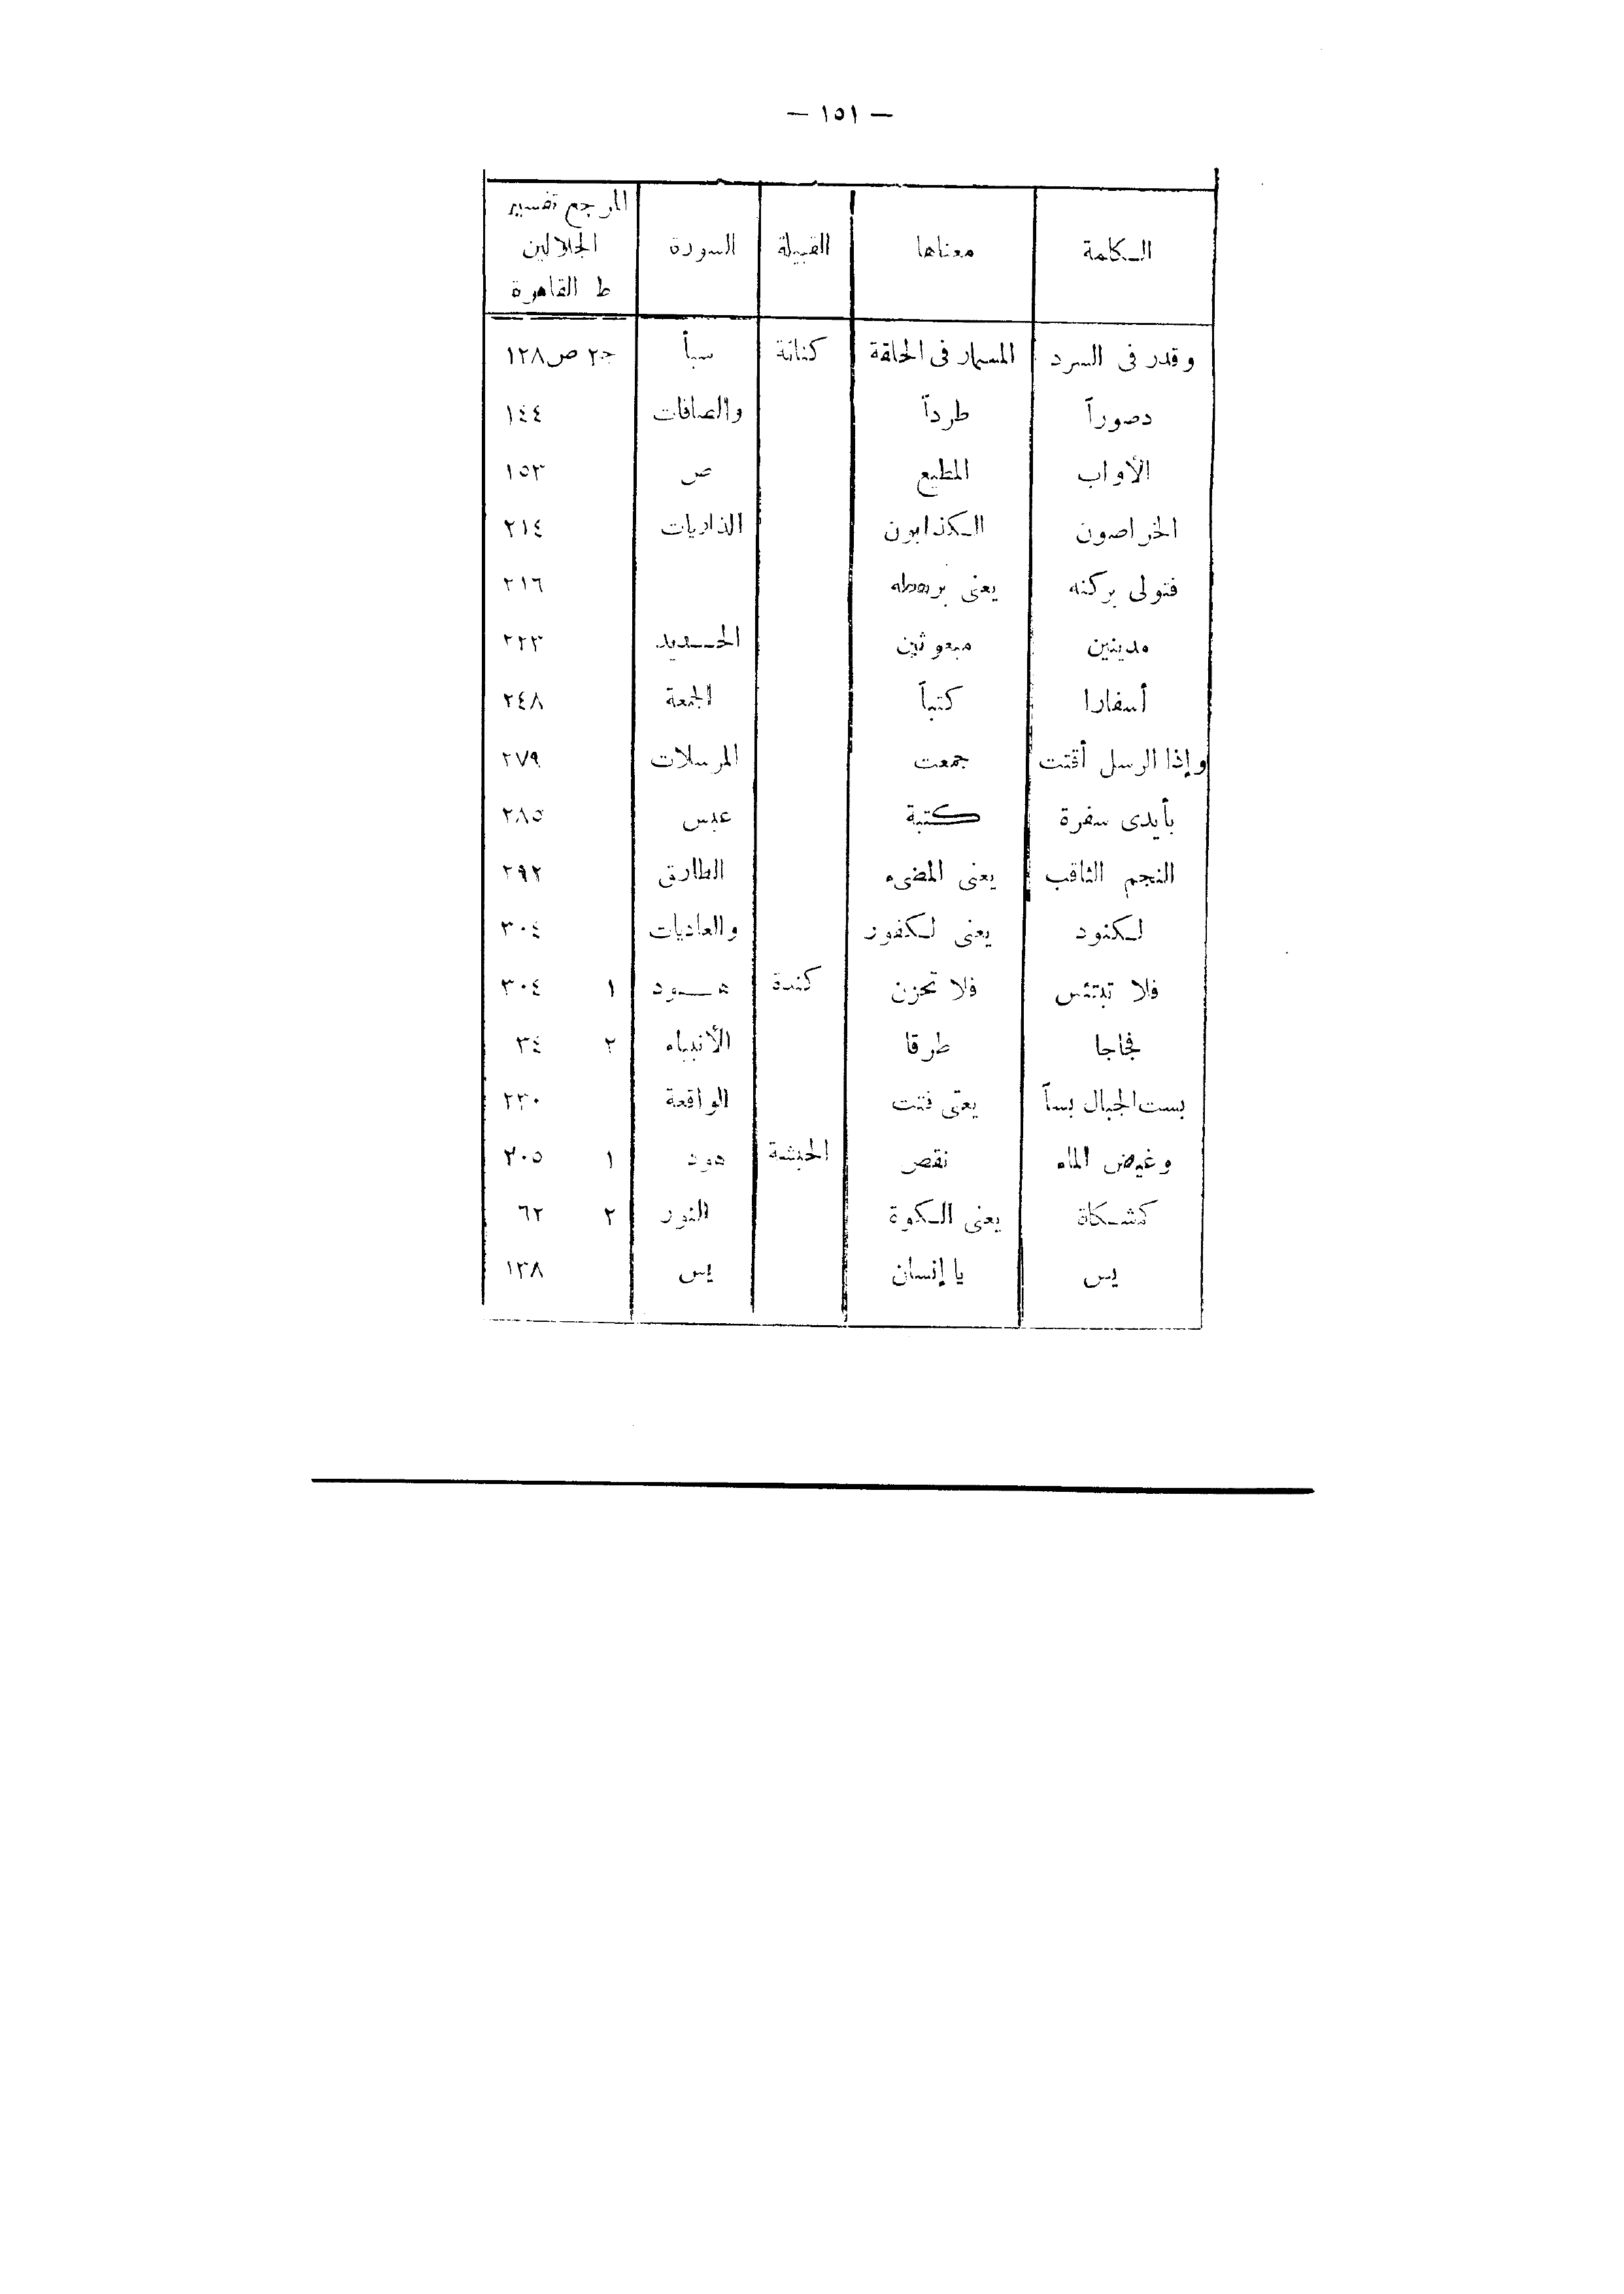 — ١٥١ —
الكلمة | معناها | القبيلة | السورة | المرجع تفسير الجلالين ط القاهرة
وقدر فى السرد | المسمار فى الحلقة | كنانة | سبأ | ج٢ ص١٢٨
دصوراً | طرداً | والصافات | ١٤٤
الأواب | المطيع | ص | ١٥٣
الخراصون | الكذابون | الذاريات | ٢١٤
فتولى بركنه | يعنى برهطه | ٢١٦
مدينين | مبعوثين | الحديد | ٢٢٣
أسفارا | كتباً | الجمعة | ٢٤٨
وإذا الرسل أقتت | جمعت | المرسلات | ٢٧٩
بأيدى سفرة | كتبة | عبس | ٢٨٥
النجم الثاقب | يعنى المضىء | الطارق | ٢٩٢
لكنود | يعنى لكفور | والعاديات | ٣٠٤
فلا تبتئس | فلا تحزن | كندة | هود | ١ ٣٠٤
فجاجا | طرقا | الأنبياء | ٢ ٣٤
بست الجبال بساً | يعنى فتت | الواقعة | ٢٣٠
وغيض الماء | نقص | الحبشة | هود | ١ ٢٠٥
كمشكاة | يعنى الكوة | النور | ٢ ٦٢
يس | يا إنسان | يس | ١٣٨